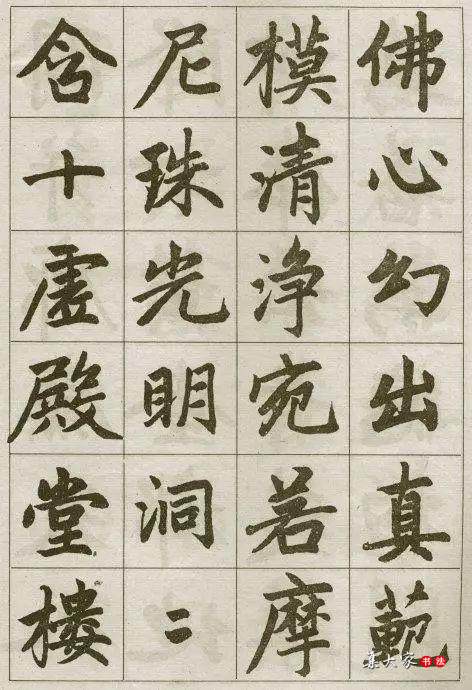 佛心幻出真範
模清淨宛若摩
尼珠光明洞〻
含十虛殿堂樓
集大家书法